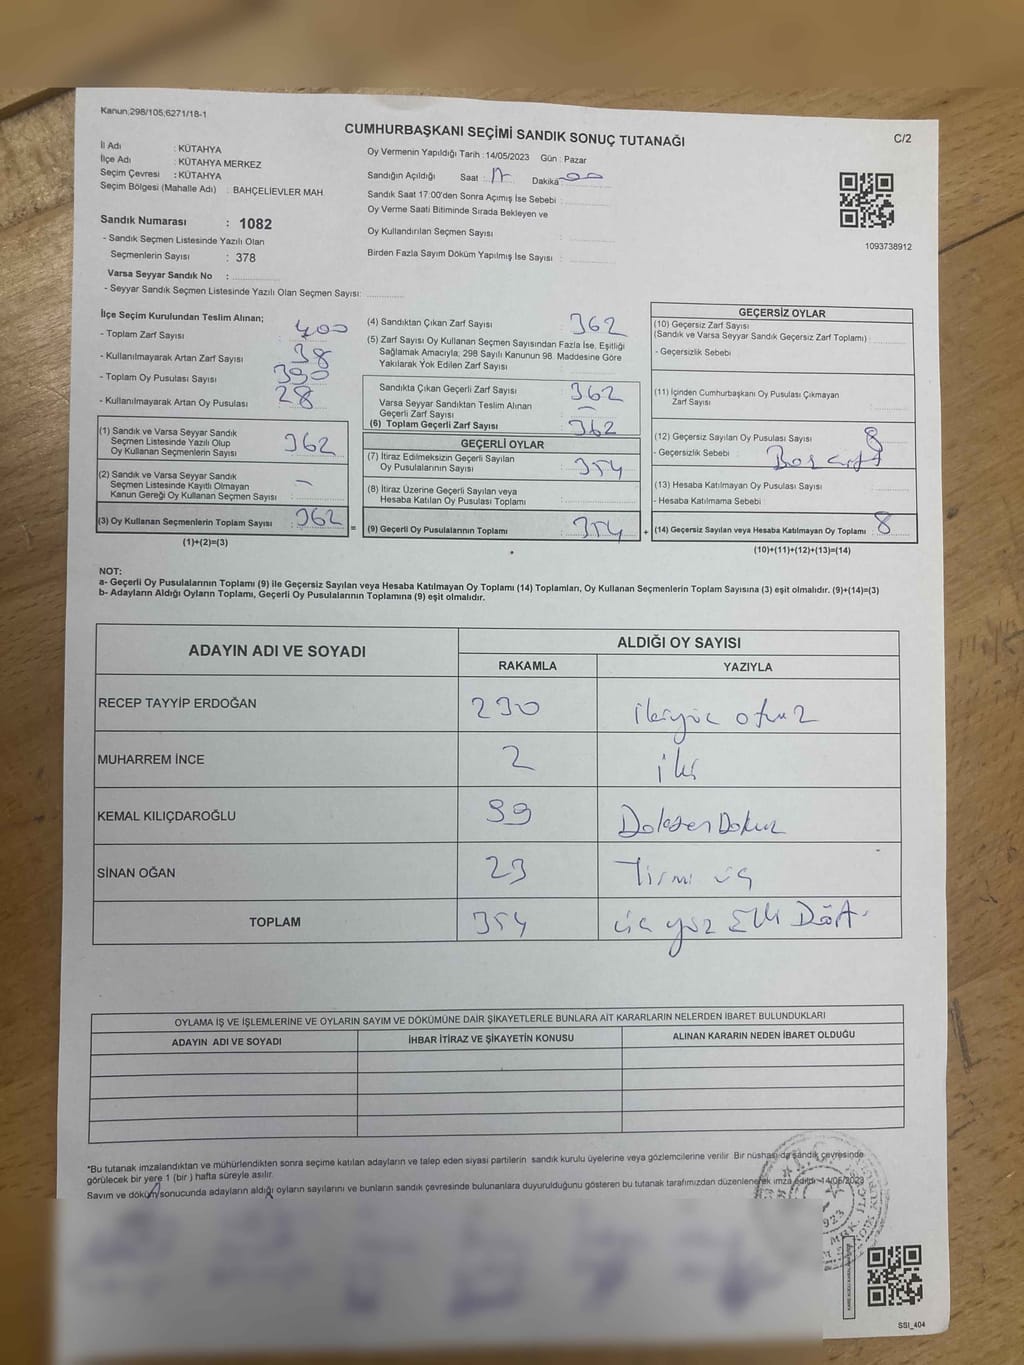 Kanun;298/105;6271/18-1
CUMHURBAŞKANI SEÇİMİ SANDIK SONUÇ TUTANAĞI
C/2
İl Adı : KÜTAHYA
İlçe Adı : KÜTAHYA MERKEZ
Seçim Çevresi : KÜTAHYA
Seçim Bölgesi (Mahalle Adı) : BAHÇELİEVLER MAH.
Sandık Numarası : 1082
- Sandık Seçmen Listesinde Yazılı Olan
Seçmenlerin Sayısı : 378
Varsa Seyyar Sandık No :
- Seyyar Sandık Seçmen Listesinde Yazılı Olan Seçmen Sayısı:
Oy Vermenin Yapıldığı Tarih : 14/05/2023 Gün : Pazar
Sandığın Açıldığı Saat : 17 Dakika 00
Sandık Saat 17:00'den Sonra Açımış İse Sebebi :
Oy Verme Saati Bitiminde Sırada Bekleyen ve
Oy Kullandırılan Seçmen Sayısı :
Birden Fazla Sayım Döküm Yapılmış İse Sayısı :
1093738912
İlçe Seçim Kurulundan Teslim Alınan;
- Toplam Zarf Sayısı : 400
- Kullanılmayarak Artan Zarf Sayısı : 38
- Toplam Oy Pusulası Sayısı : 390
- Kullanılmayarak Artan Oy Pusulası : 28
(1) Sandık ve Varsa Seyyar Sandık
Seçmen Listesinde Yazılı Olup
Oy Kullanan Seçmenlerin Sayısı : 362
(2) Sandık ve Varsa Seyyar Sandık
Seçmen Listesinde Kayıtlı Olmayan
Kanun Gereği Oy Kullanan Seçmen Sayısı : -
(3) Oy Kullanan Seçmenlerin Toplam Sayısı : 362
(1)+(2)=(3)
(4) Sandıktan Çıkan Zarf Sayısı : 362
(5) Zarf Sayısı Oy Kullanan Seçmen Sayısından Fazla İse, Eşitliği
Sağlamak Amacıyla; 298 Sayılı Kanunun 98. Maddesine Göre
Yakılarak Yok Edilen Zarf Sayısı :
Sandıkta Çıkan Geçerli Zarf Sayısı : 362
Varsa Seyyar Sandıktan Teslim Alınan
Geçerli Zarf Sayısı : -
(6) Toplam Geçerli Zarf Sayısı : 362
GEÇERLİ OYLAR
(7) İtiraz Edilmeksizin Geçerli Sayılan
Oy Pusulalarının Sayısı : 354
(8) İtiraz Üzerine Geçerli Sayılan veya
Hesaba Katılan Oy Pusulası Toplamı :
= (9) Geçerli Oy Pusulalarının Toplamı : 354 +
GEÇERSİZ OYLAR
(10) Geçersiz Zarf Sayısı
(Sandık ve Varsa Seyyar Sandık Geçersiz Zarf Toplamı) :
- Geçersizlik Sebebi
(11) İçinden Cumhurbaşkanı Oy Pusulası Çıkmayan
Zarf Sayısı :
(12) Geçersiz Sayılan Oy Pusulası Sayısı : 8
- Geçersizlik Sebebi : Boş
(13) Hesaba Katılmayan Oy Pusulası Sayısı :
- Hesaba Katılmama Sebebi
(14) Geçersiz Sayılan veya Hesaba Katılmayan Oy Toplamı : 8
(10)+(11)+(12)+(13)=(14)
NOT:
a- Geçerli Oy Pusulalarının Toplamı (9) ile Geçersiz Sayılan veya Hesaba Katılmayan Oy Toplamı (14) Toplamları, Oy Kullanan Seçmenlerin Toplam Sayısına (3) eşit olmalıdır. (9)+(14)=(3)
b- Adayların Aldığı Oyların Toplamı, Geçerli Oy Pusulalarının Toplamına (9) eşit olmalıdır.
ADAYIN ADI VE SOYADI
ALDIĞI OY SAYISI
RAKAMLA YAZIYLA
RECEP TAYYİP ERDOĞAN 230 ikiyüz otuz
MUHARREM İNCE 2 iki
KEMAL KILIÇDAROĞLU 99 Doksan Dokuz
SİNAN OĞAN 23 Yirmi üç
TOPLAM 354 üç yüz Elli Dört
OYLAMA İŞ VE İŞLEMLERİNE VE OYLARIN SAYIM VE DÖKÜMÜNE DAİR ŞİKAYETLERLE BUNLARA AİT KARARLARIN NELERDEN İBARET BULUNDUKLARI
ADAYIN ADI VE SOYADI İHBAR İTİRAZ VE ŞİKAYETİN KONUSU ALINAN KARARIN NEDEN İBARET OLDUĞU
*Bu tutanak imzalandıktan ve mühürlendikten sonra seçime katılan adayların ve talep eden siyasi partilerin sandık kurulu üyelerine veya gözlemcilerine verilir. Bir nüshası da sandık çevresinde
görülecek bir yere 1 (bir ) hafta süreyle asılır.
Sayım ve döküm sonucunda adayların aldığı oyların sayılarını ve bunların sandık çevresinde bulunanlara duyurulduğunu gösteren bu tutanak tarafımızdan düzenlenerek imza edildi. 14/05/2023
SSI_404